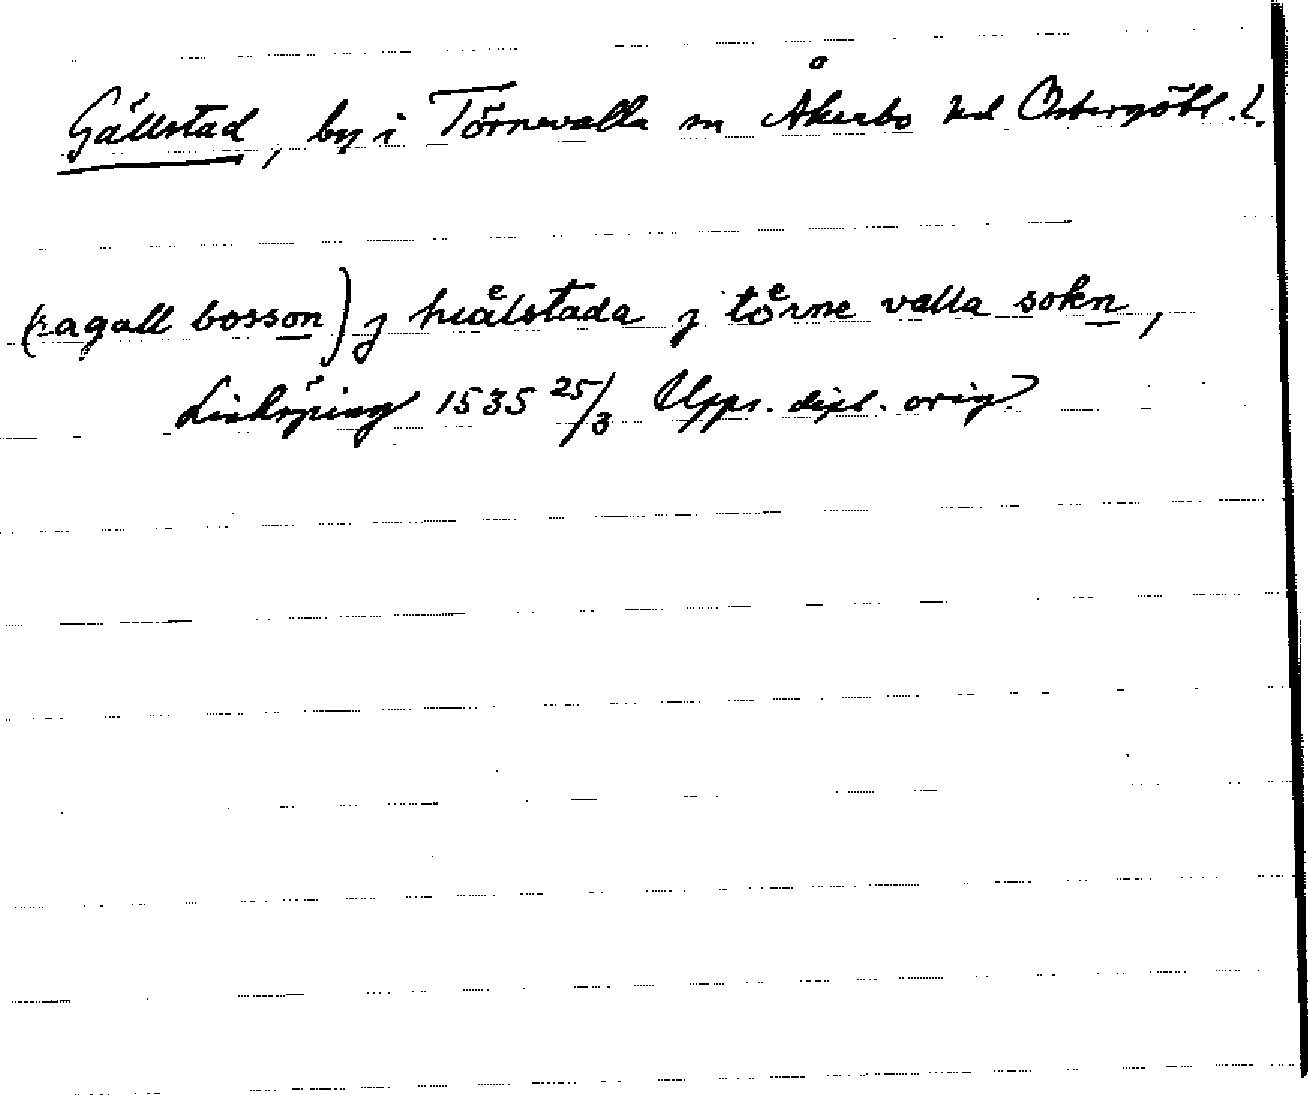 Gällstad, by i Törnevalla sn Åkerbo hd Östergötl. l.
(ragall bosson) j hiaͤlstada j toͤrne valla sokn,
Linköping 1535 25/3 Upps. dipl. orig.